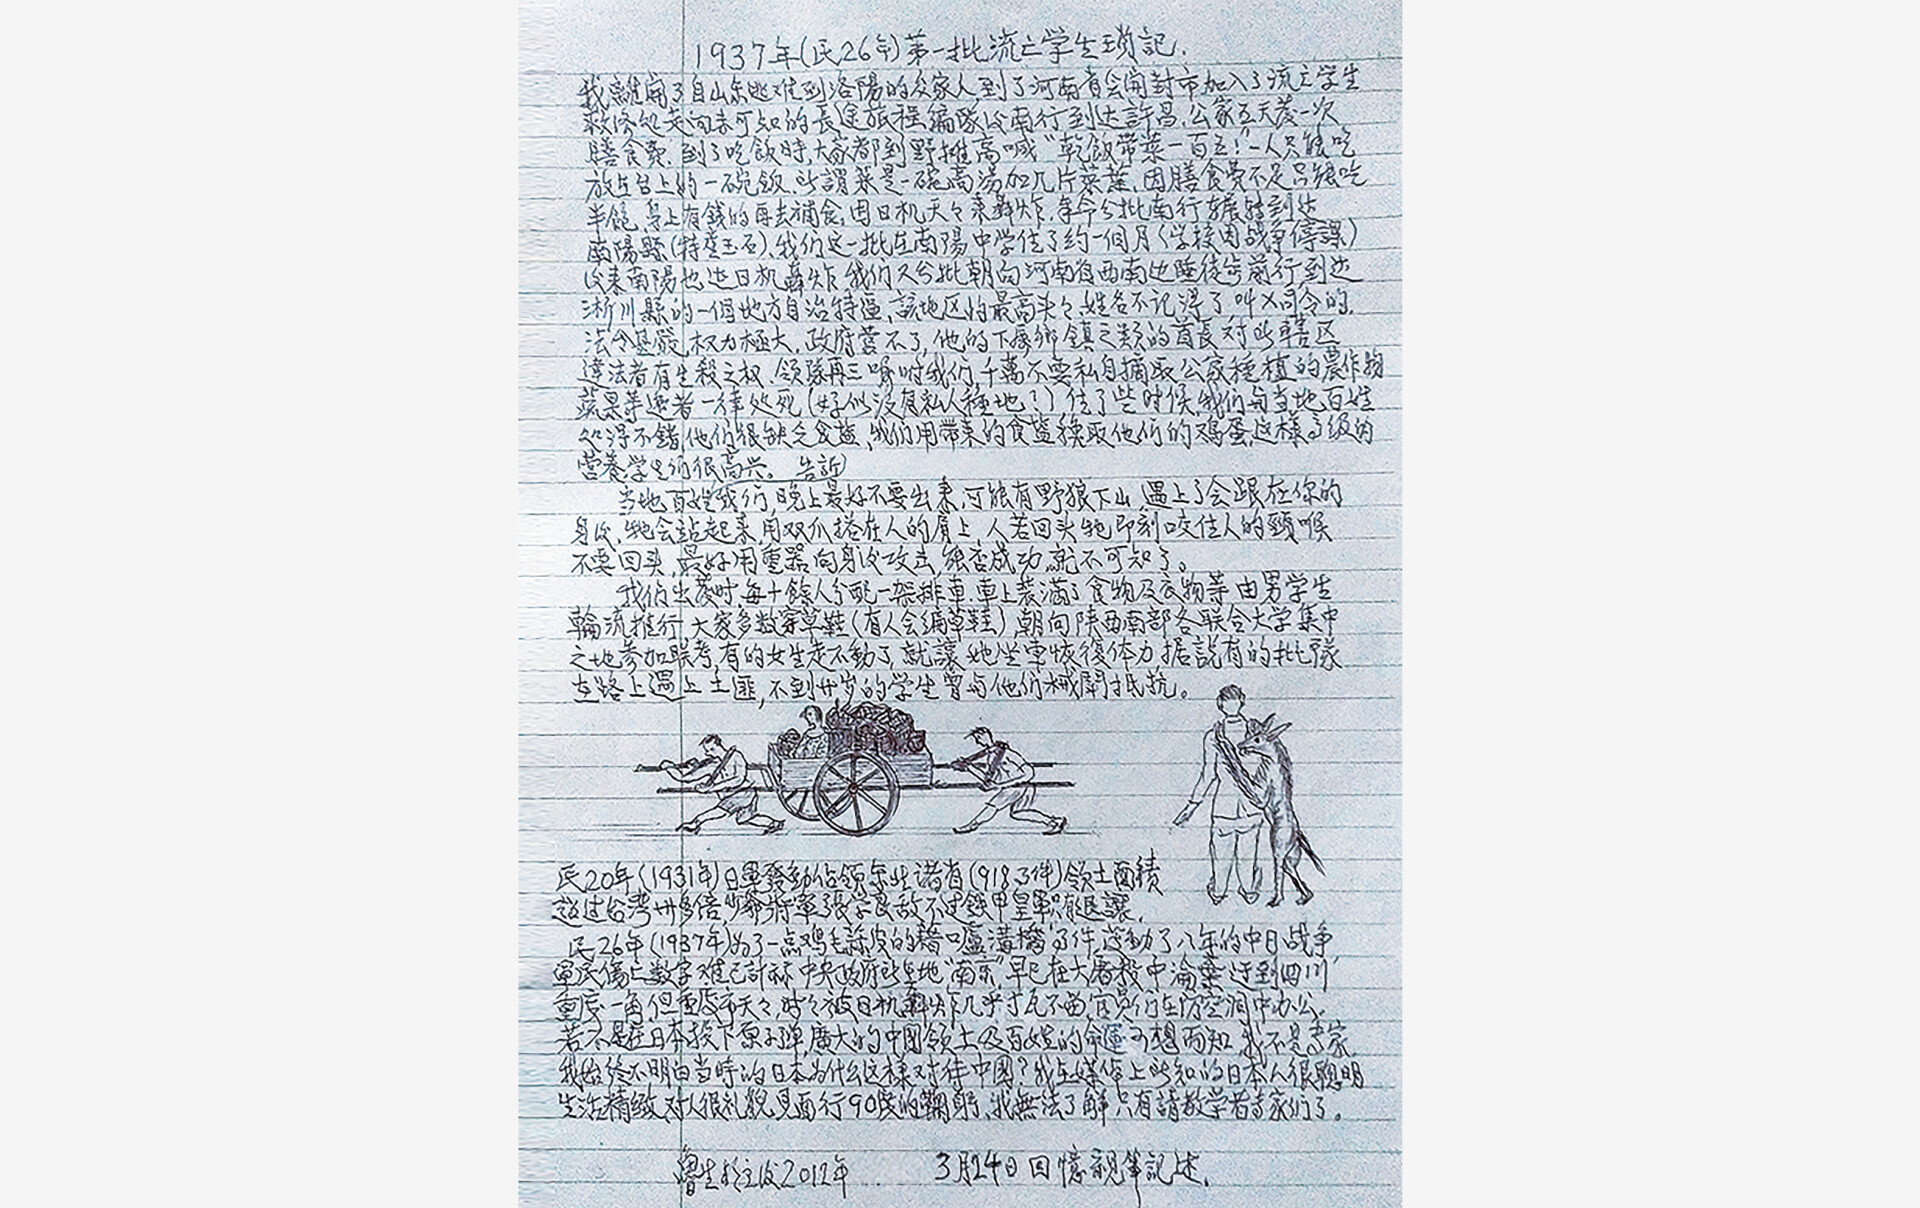 1937年(民26年)第一批流亡学生瑣記.
我離開了自山东逃难到洛陽的父家人,到了河南省会開封市加入了流亡学生
救済処走向未可知的長途旅程編隊后南行到达許昌.公家五天发一次
膳食费.到了吃飯時,大家都到野摊高喊"乾飯带菜一百五!"一人只能吃
放在台上的一碗飯.所謂菜是一碗高湯加几片菜葉,因膳食费不足只能吃
半飽,身上有錢的再去補食,因日机天々來轟炸.奉命分批南行輾轉到达
南陽縣(特產玉石)、我们这一批在南陽中学住了約一個月(学校因战争停課)
后来南陽也遭日机轟炸 我们又分批朝向河南省西南边陲徒步前行到达
淅川縣的一個地方自治特區,該地区的最高头々,姓名不记得了叫X司令的.
法令甚嚴,权力極大.政府管不了,他的下屬鄉鎮之類的首長对此轄区
違法者有生殺之权.领隊再三嘱咐我们,千萬不要私自摘取公家種植的農作物
蔬果等違者一律处死(好似没有私人種地?)住了些时候,我们与当地百姓
处得不錯他们很缺乏食盐,我们用带来的食盐換取他们的鸡蛋,这樣高级的
营养学生们很高兴。告訴
当地百姓我们,晚上最好不要出来,可能有野狼下山,遇上了会跟在你的
身后,牠会站起来,用双爪搭在人的肩上,人若回头牠即刻咬住人的頸喉
不要回头,最好用重器向身后攻击,能否成功就不可知了。
我们出发时,每十餘人分配一架排車.車上装满了食物及衣物等 由男学生
輪流推行,大家多数穿草鞋(有人会编草鞋)朝向陕西南部各联合大学集中
之地参加联考,有的女生走不動了,就讓她坐車恢復体力,据説有的批隊
在路上遇上土匪,不到廿岁的学生曾与他们械鬥抵抗。
民20年(1931年)日軍發動佔領东北诸省(918事件)领土面積
超过台湾卅多倍,少爺将軍張学良敵不过鉄甲皇軍只能退讓.
民26年(1937年)为了一点鸡毛蒜皮的藉口"盧溝橋"事件,发動了八年的中日战争
軍民傷亡数字难已計称 中央政府所在地"南京"早已在大屠殺中淪棄迁到四川
重庆一角 但重庆市天々,时々被日机轟炸几乎寸瓦不留,官员们在防空洞中办公.
若不是在日本投下原子弹,廣大的中國领土及百姓的命運可想而知,我不是专家,
我始终不明白当時的日本为什么这樣对待中國?我在媒体上所知的日本人很聰明
生活精緻,对人很礼貌,見面行90度的鞠躬、我無法了解只有請教学者专家们了。
魯生 2012年 3月24日回憶親筆記述.